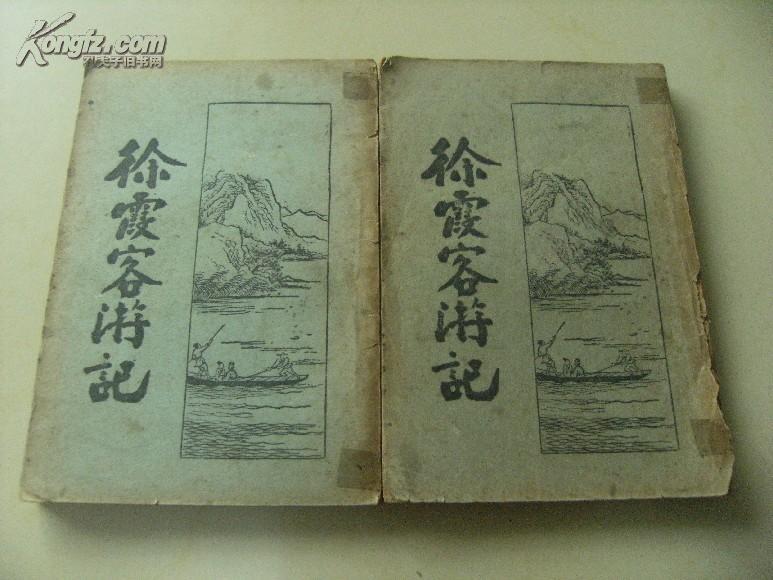 Kongfz.com
孔夫子旧书网
徐霞客游記
徐霞客游記